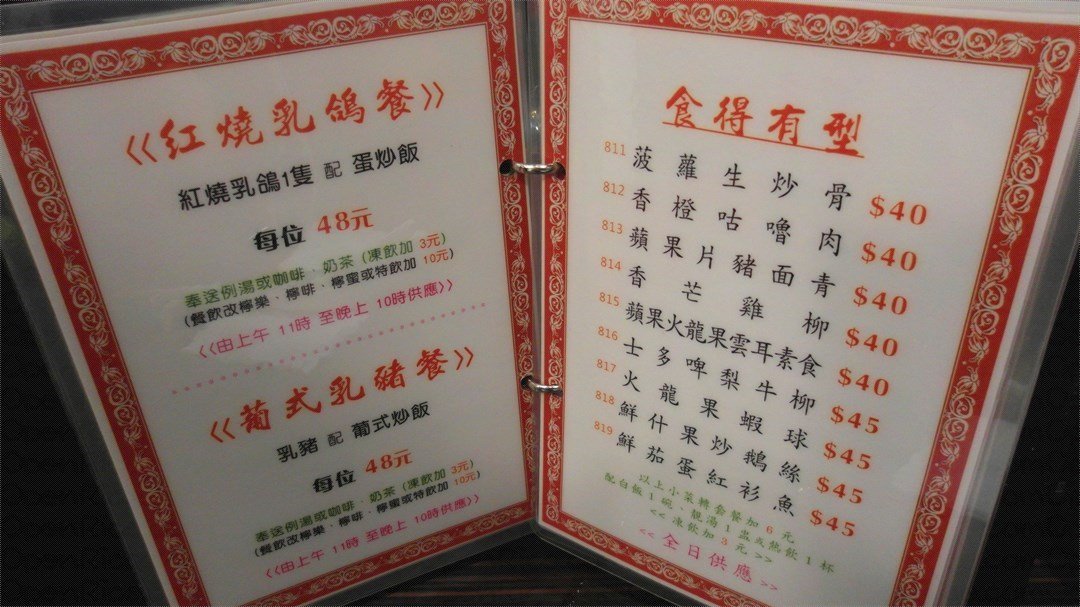 《紅燒乳鴿餐》
紅燒乳鴿1隻 配 蛋炒飯
每位 48元
奉送例湯或咖啡、奶茶 (凍飲加 3元)
(餐飲改檸樂、檸啡、檸蜜或特飲加 10元)
<<由上午 11時 至晚上 10時供應>>
《葡式乳豬餐》
乳豬 配 葡式炒飯
每位 48元
奉送例湯或咖啡、奶茶 (凍飲加 3元)
(餐飲改檸樂、檸啡、檸蜜或特飲加 10元)
<<由上午 11時 至晚上 10時供應>>
食得有型
811 菠蘿生炒骨 $40
812 香橙咕嚕肉 $40
813 蘋果片豬面青 $40
814 香芒雞柳 $40
815 蘋果火龍果雲耳素食 $40
816 士多啤梨牛柳 $45
817 火龍果蝦球 $45
818 鮮什果炒鵝絲 $45
819 鮮茄蛋紅衫魚 $45
以上小菜轉套餐加 6 元
配白飯1碗、靚湯1盅或熱飲1杯
<< 凍飲加 3 元 >>
<< 全日供應 >>